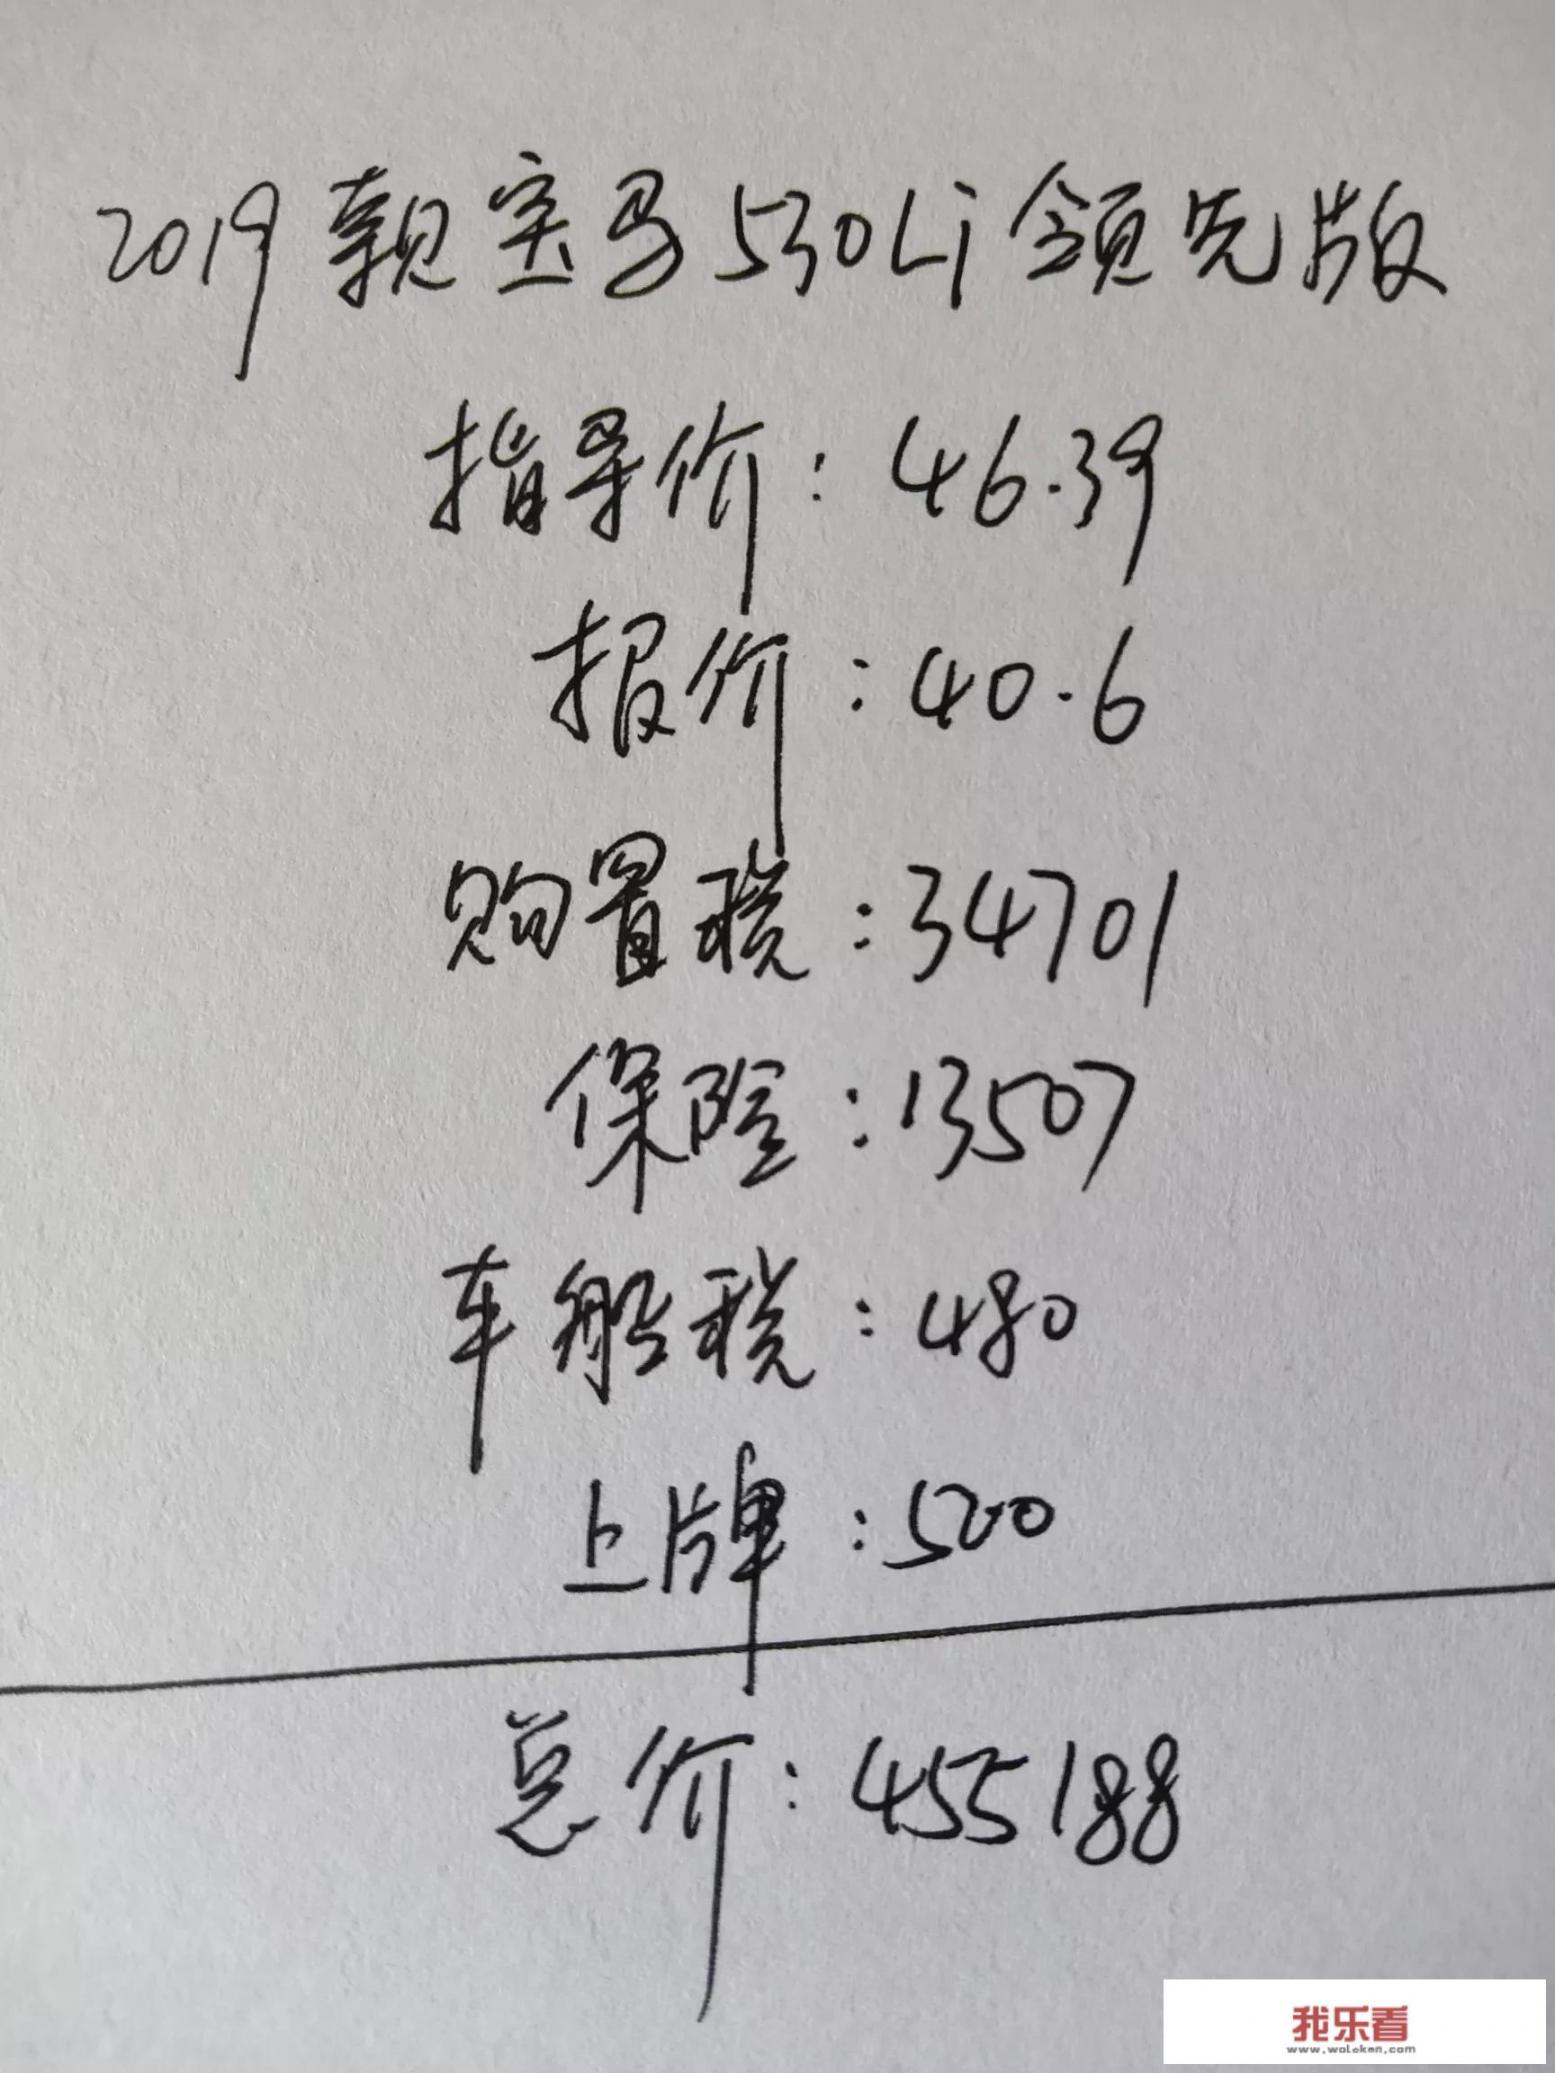 2019款宝马530Li领先版
指导价：46.39
报价：40.6
购置税：34701
保险：13507
车船税：480
上牌：500
总价：455188
我乐看
www.woleken.com